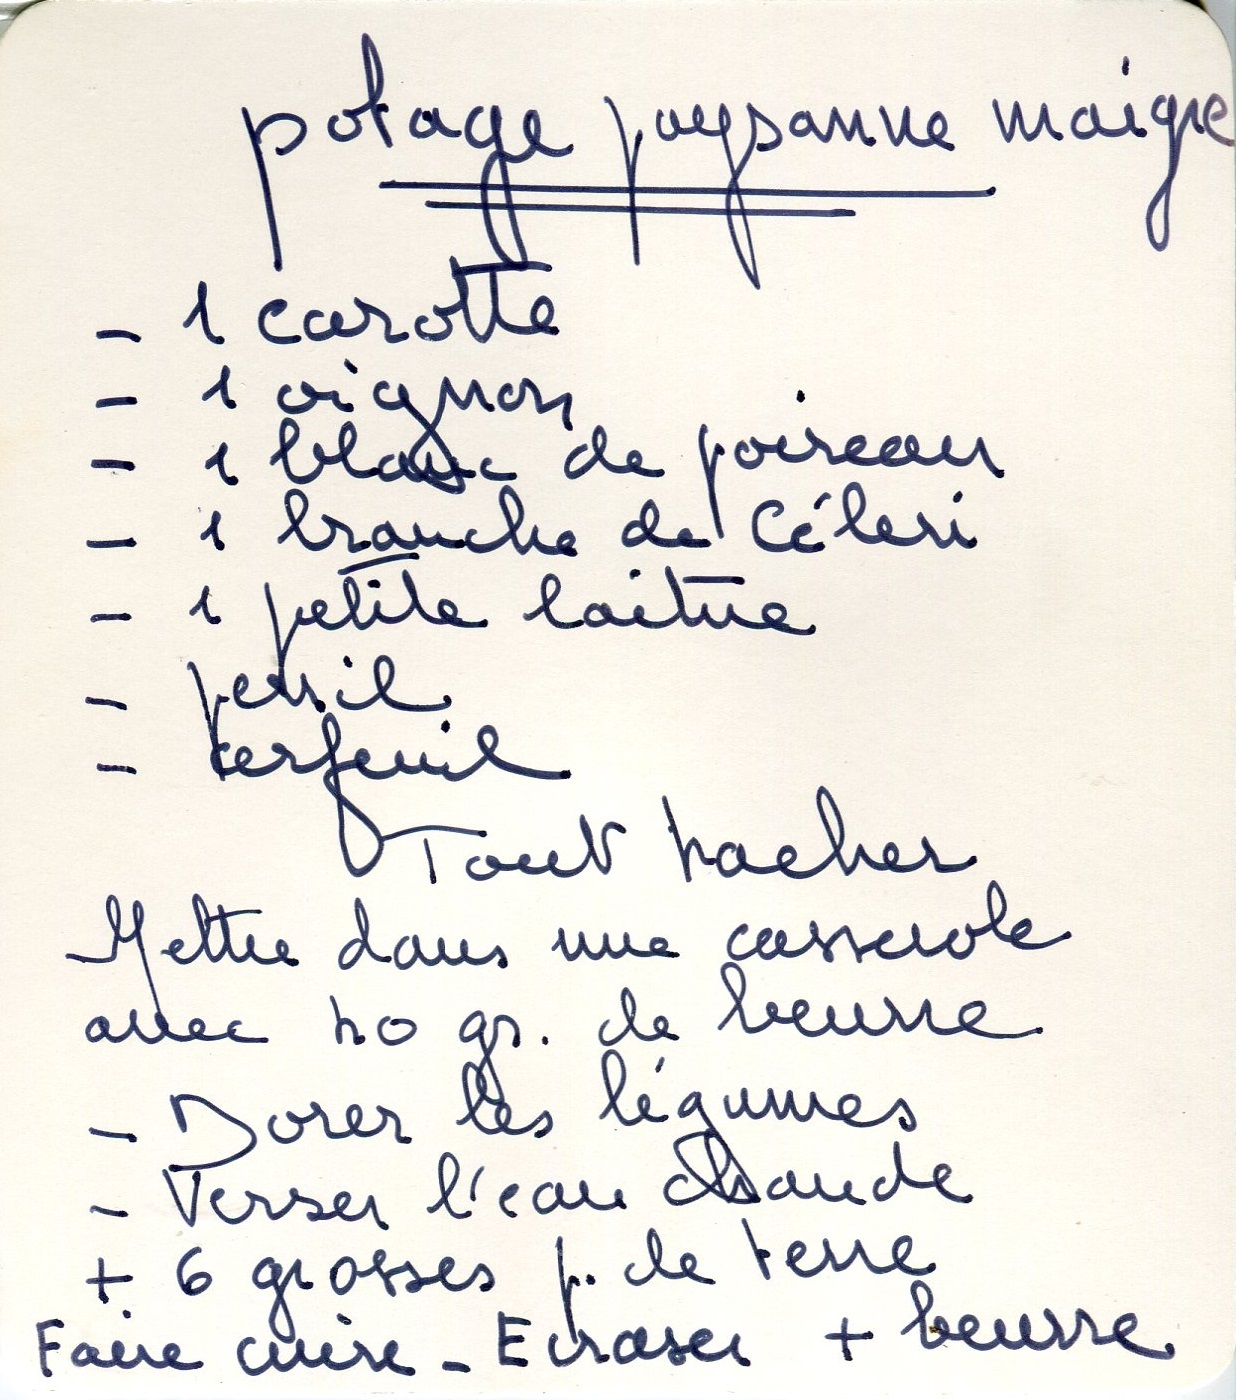 potage paysanne maigre
- 1 carotte
- 1 oignon
- 1 blanc de poireau
- 1 branche de Céleri
- 1 petite laitue
- persil
- cerfeuil
Tout hacher
Mettre dans une casserole
avec 40 gr. de beurre
- Dorer les légumes
- Verser l'eau chaude
+ 6 grosses p. de terre
Faire cuire - Ecraser + beurre